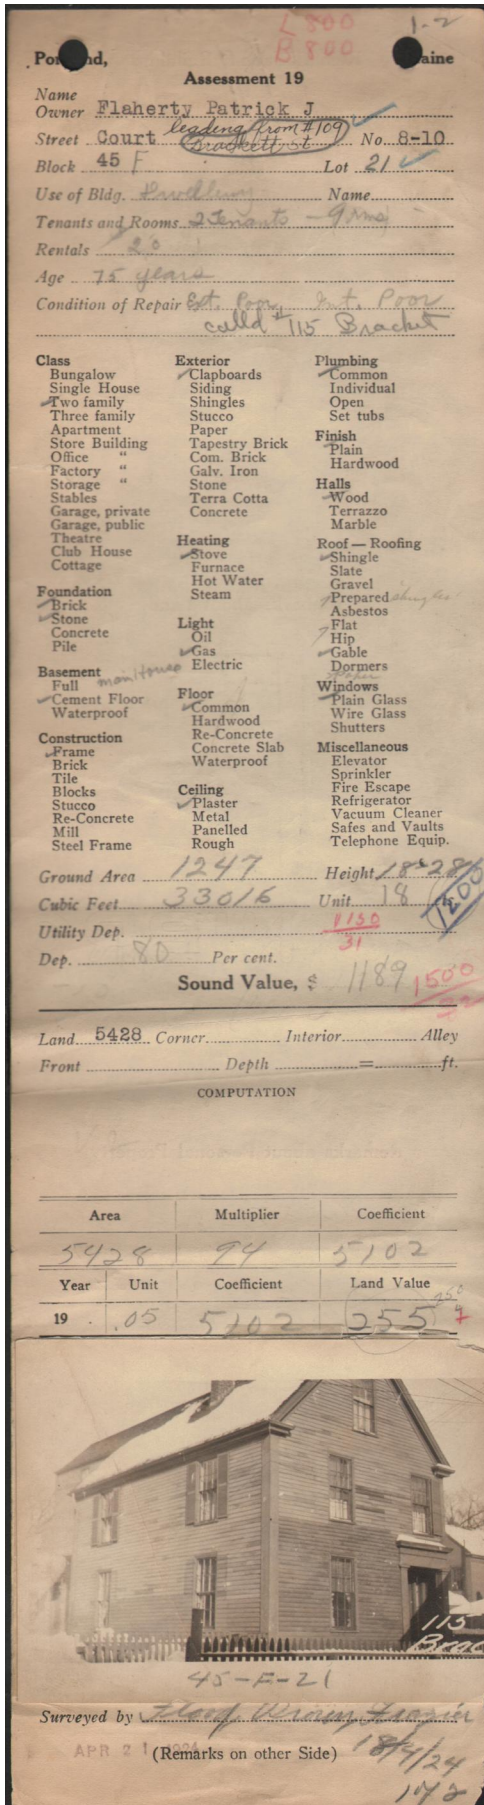 L 800 1-2
B 800
Portland, Maine
Assessment 19
Name
Owner Flaherty Patrick J
Street Court leading from #109 Brackett St No. 8-10
Block 45 F Lot 21
Use of Bldg. Dwelling Name
Tenants and Rooms 2 Tenants - 9 rms
Rentals 20
Age 75 years
Condition of Repair Ext. Poor Int. Poor
calld #115 Bracket
Class
Bungalow
Single House
Two family
Three family
Apartment
Store Building
Office "
Factory "
Storage "
Stables
Garage, private
Garage, public
Theatre
Club House
Cottage
Foundation
Brick
Stone
Concrete
Pile
Basement
Full main House
Cement Floor
Waterproof
Construction
Frame
Brick
Tile
Blocks
Stucco
Re-Concrete
Mill
Steel Frame
Exterior
Clapboards
Siding
Shingles
Stucco
Paper
Tapestry Brick
Com. Brick
Galv. Iron
Stone
Terra Cotta
Concrete
Heating
Stove
Furnace
Hot Water
Steam
Light
Oil
Gas
Electric
Floor
Common
Hardwood
Re-Concrete
Concrete Slab
Waterproof
Ceiling
Plaster
Metal
Panelled
Rough
Plumbing
Common
Individual
Open
Set tubs
Finish
Plain
Hardwood
Halls
Wood
Terrazzo
Marble
Roof — Roofing
Shingle
Slate
Gravel
Prepared shingles
Asbestos
Flat
Hip
Gable
Dormers
Windows
Plain Glass
Wire Glass
Shutters
Miscellaneous
Elevator
Sprinkler
Fire Escape
Refrigerator
Vacuum Cleaner
Safes and Vaults
Telephone Equip.
Ground Area 1247 Height 18 & 28
Cubic Feet 33016 Unit 18 1200
Utility Dep. 1150
31
Dep. 80 Per cent.
Sound Value, $ 1189 1500
Land 5428 Corner Interior Alley
Front Depth = ft.
COMPUTATION
Area Multiplier Coefficient
5428 94 5102
Year Unit Coefficient Land Value
250
19 .05 5102 255
115
Brac
45-F-21
Surveyed by
APR 21 1924 (Remarks on other Side)
18/4/24